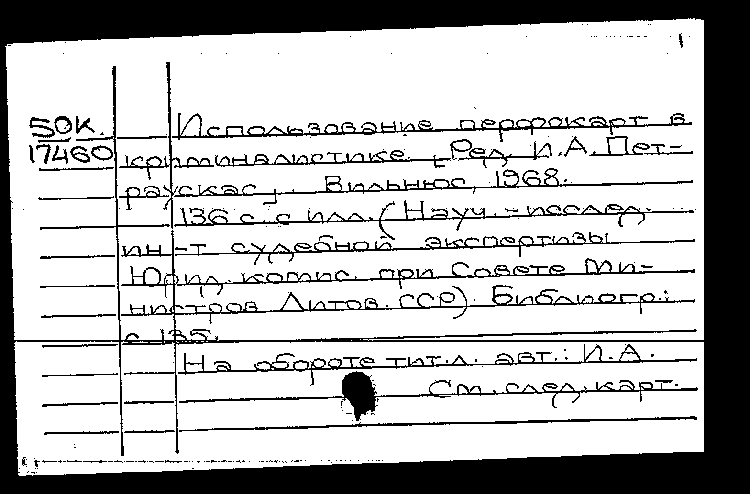 1
50К. Использование перфокарт в
17460 криминалистике. [Ред. И.А. Пет-
раускас]. Вильнюс, 1968.
136 с. с илл. (Науч.-исслед.
ин-т судебной экспертизы
Юрид. комис. при Совете Ми-
нистров Литов. ССР). Библиогр.:
с. 135.
На обороте тит. л. авт.: И.А.
См. след. карт.